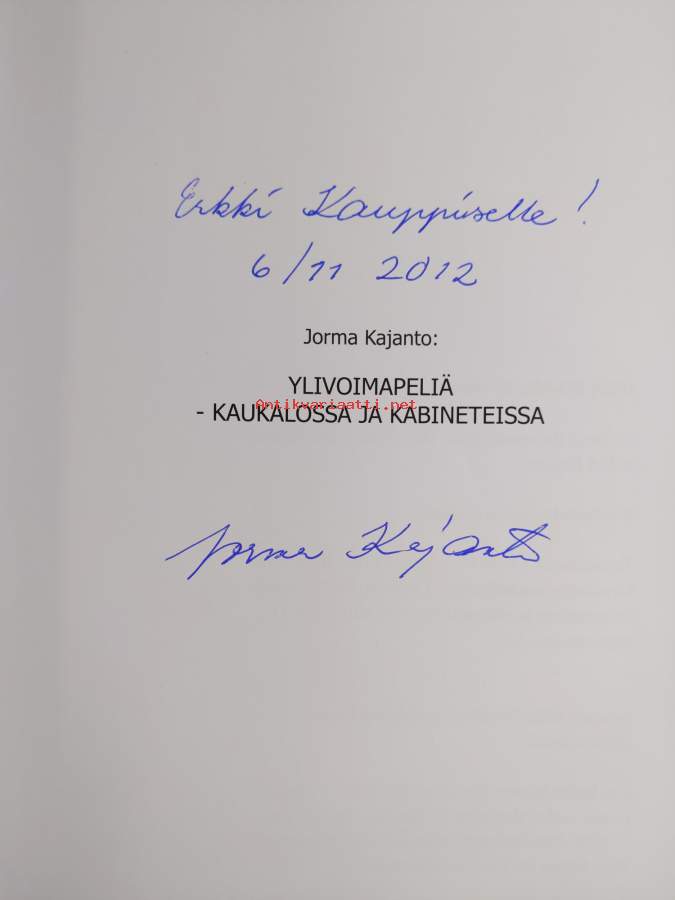 Erkki Kauppiselle!
6/11 2012
Jorma Kajanto:
YLIVOIMAPELIÄ
Antikvariaatti.net
- KAUKALOSSA JA KABINETEISSA
Jorma Kajanto